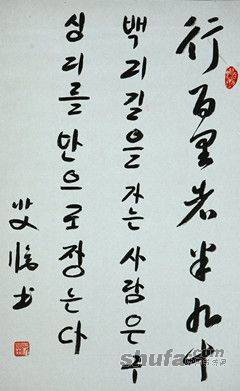 行百里者半九十
백리길을 가는 사람은 구
십리를 반으로 잡는다
書
shufa.com